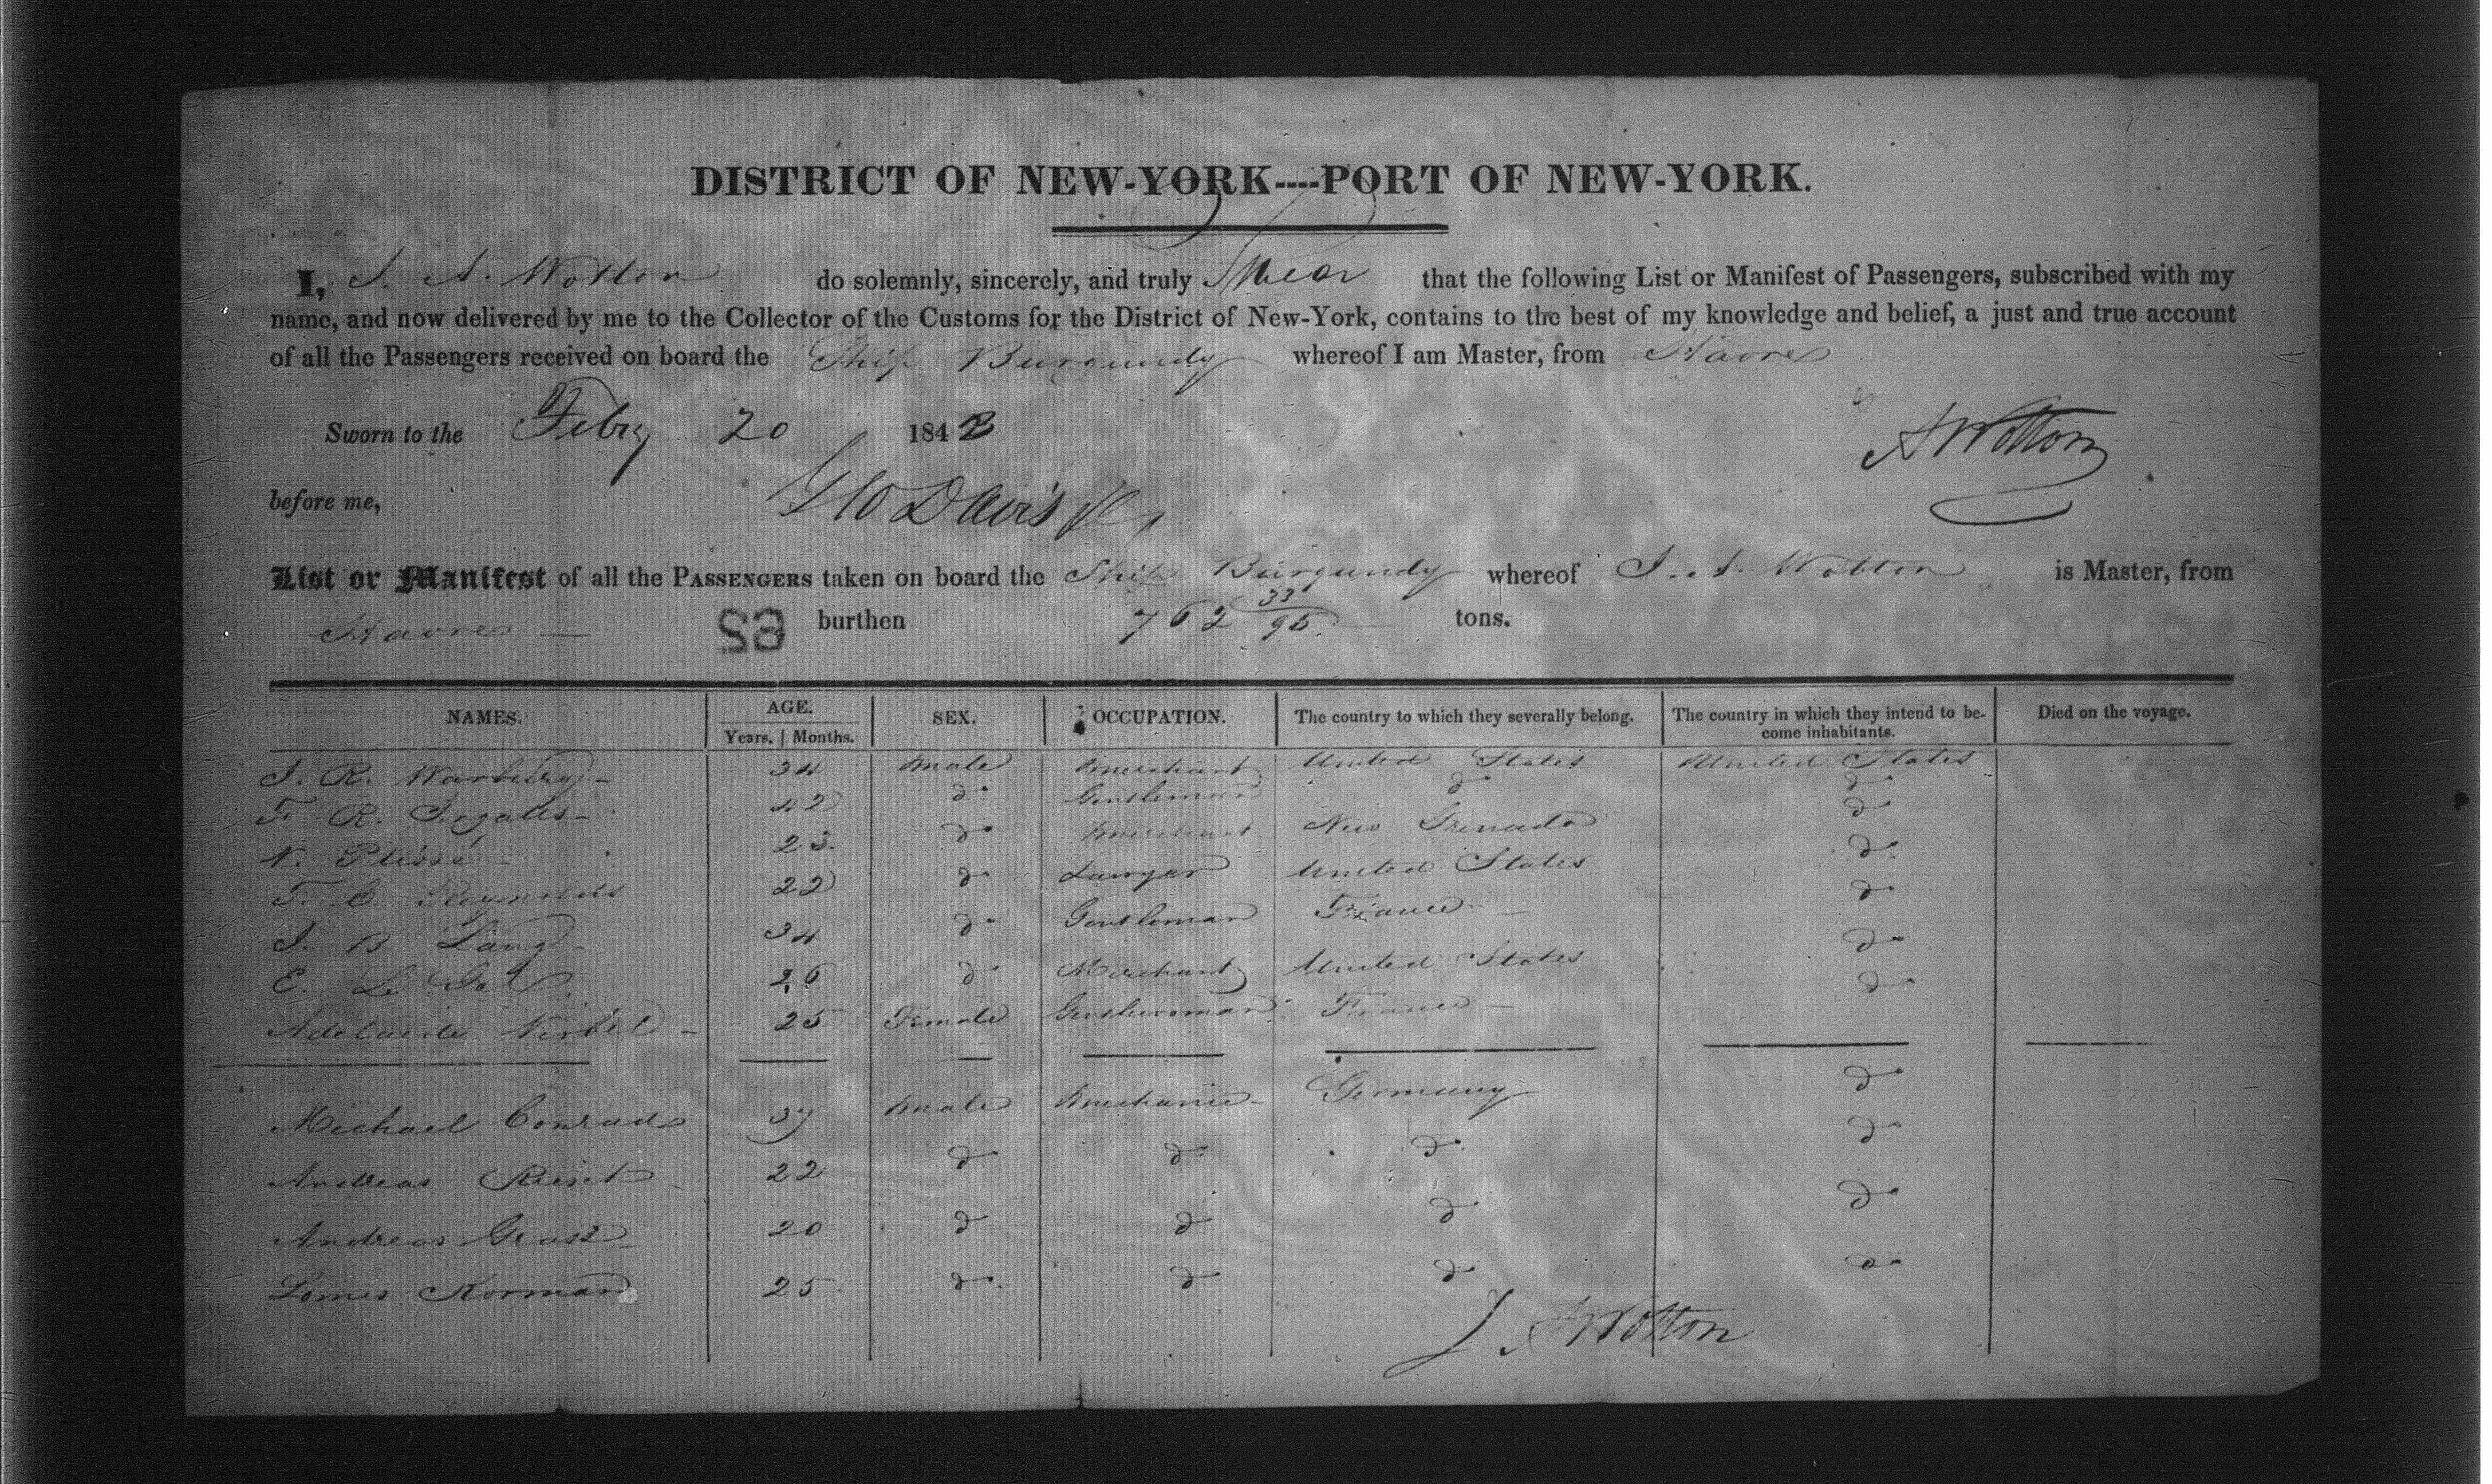 DISTRICT OF NEW-YORK----PORT OF NEW-YORK.
I, J. A. Wotton do solemnly, sincerely, and truly Swear that the following List or Manifest of Passengers, subscribed with my
name, and now delivered by me to the Collector of the Customs for the District of New-York, contains to the best of my knowledge and belief, a just and true account
of all the Passengers received on board the Ship Burgundy whereof I am Master, from Havre
Sworn to the Feby 20 1843
A Wotton
before me,
Geo Davis
List or Manifest of all the PASSENGERS taken on board the Ship Burgundy whereof J. A. Wotton is Master, from
Havre — 62 burthen 762 33/95 tons.
NAMES. AGE. Years. | Months. SEX. OCCUPATION. The country to which they severally belong. The country in which they intend to become inhabitants. Died on the voyage.
J. R. Warburg 34 Male Merchant United States United States
F. R. Ingalls 42 do Gentleman do do
N. 23 do Merchant New Grenada do
F. C. Reynolds 22 do Lawyer United States do
J. B. Lang 34 do Gentleman France do
E. Le Gal 26 do Merchant United States do
Adelaide 25 Female Gentlewoman France do
Michael Conrad 37 Male Mechanic Germany do
Andreas 22 do do do do
Andreas Grass 20 do do do do
Korman 25 do do do do
J. A Wotton